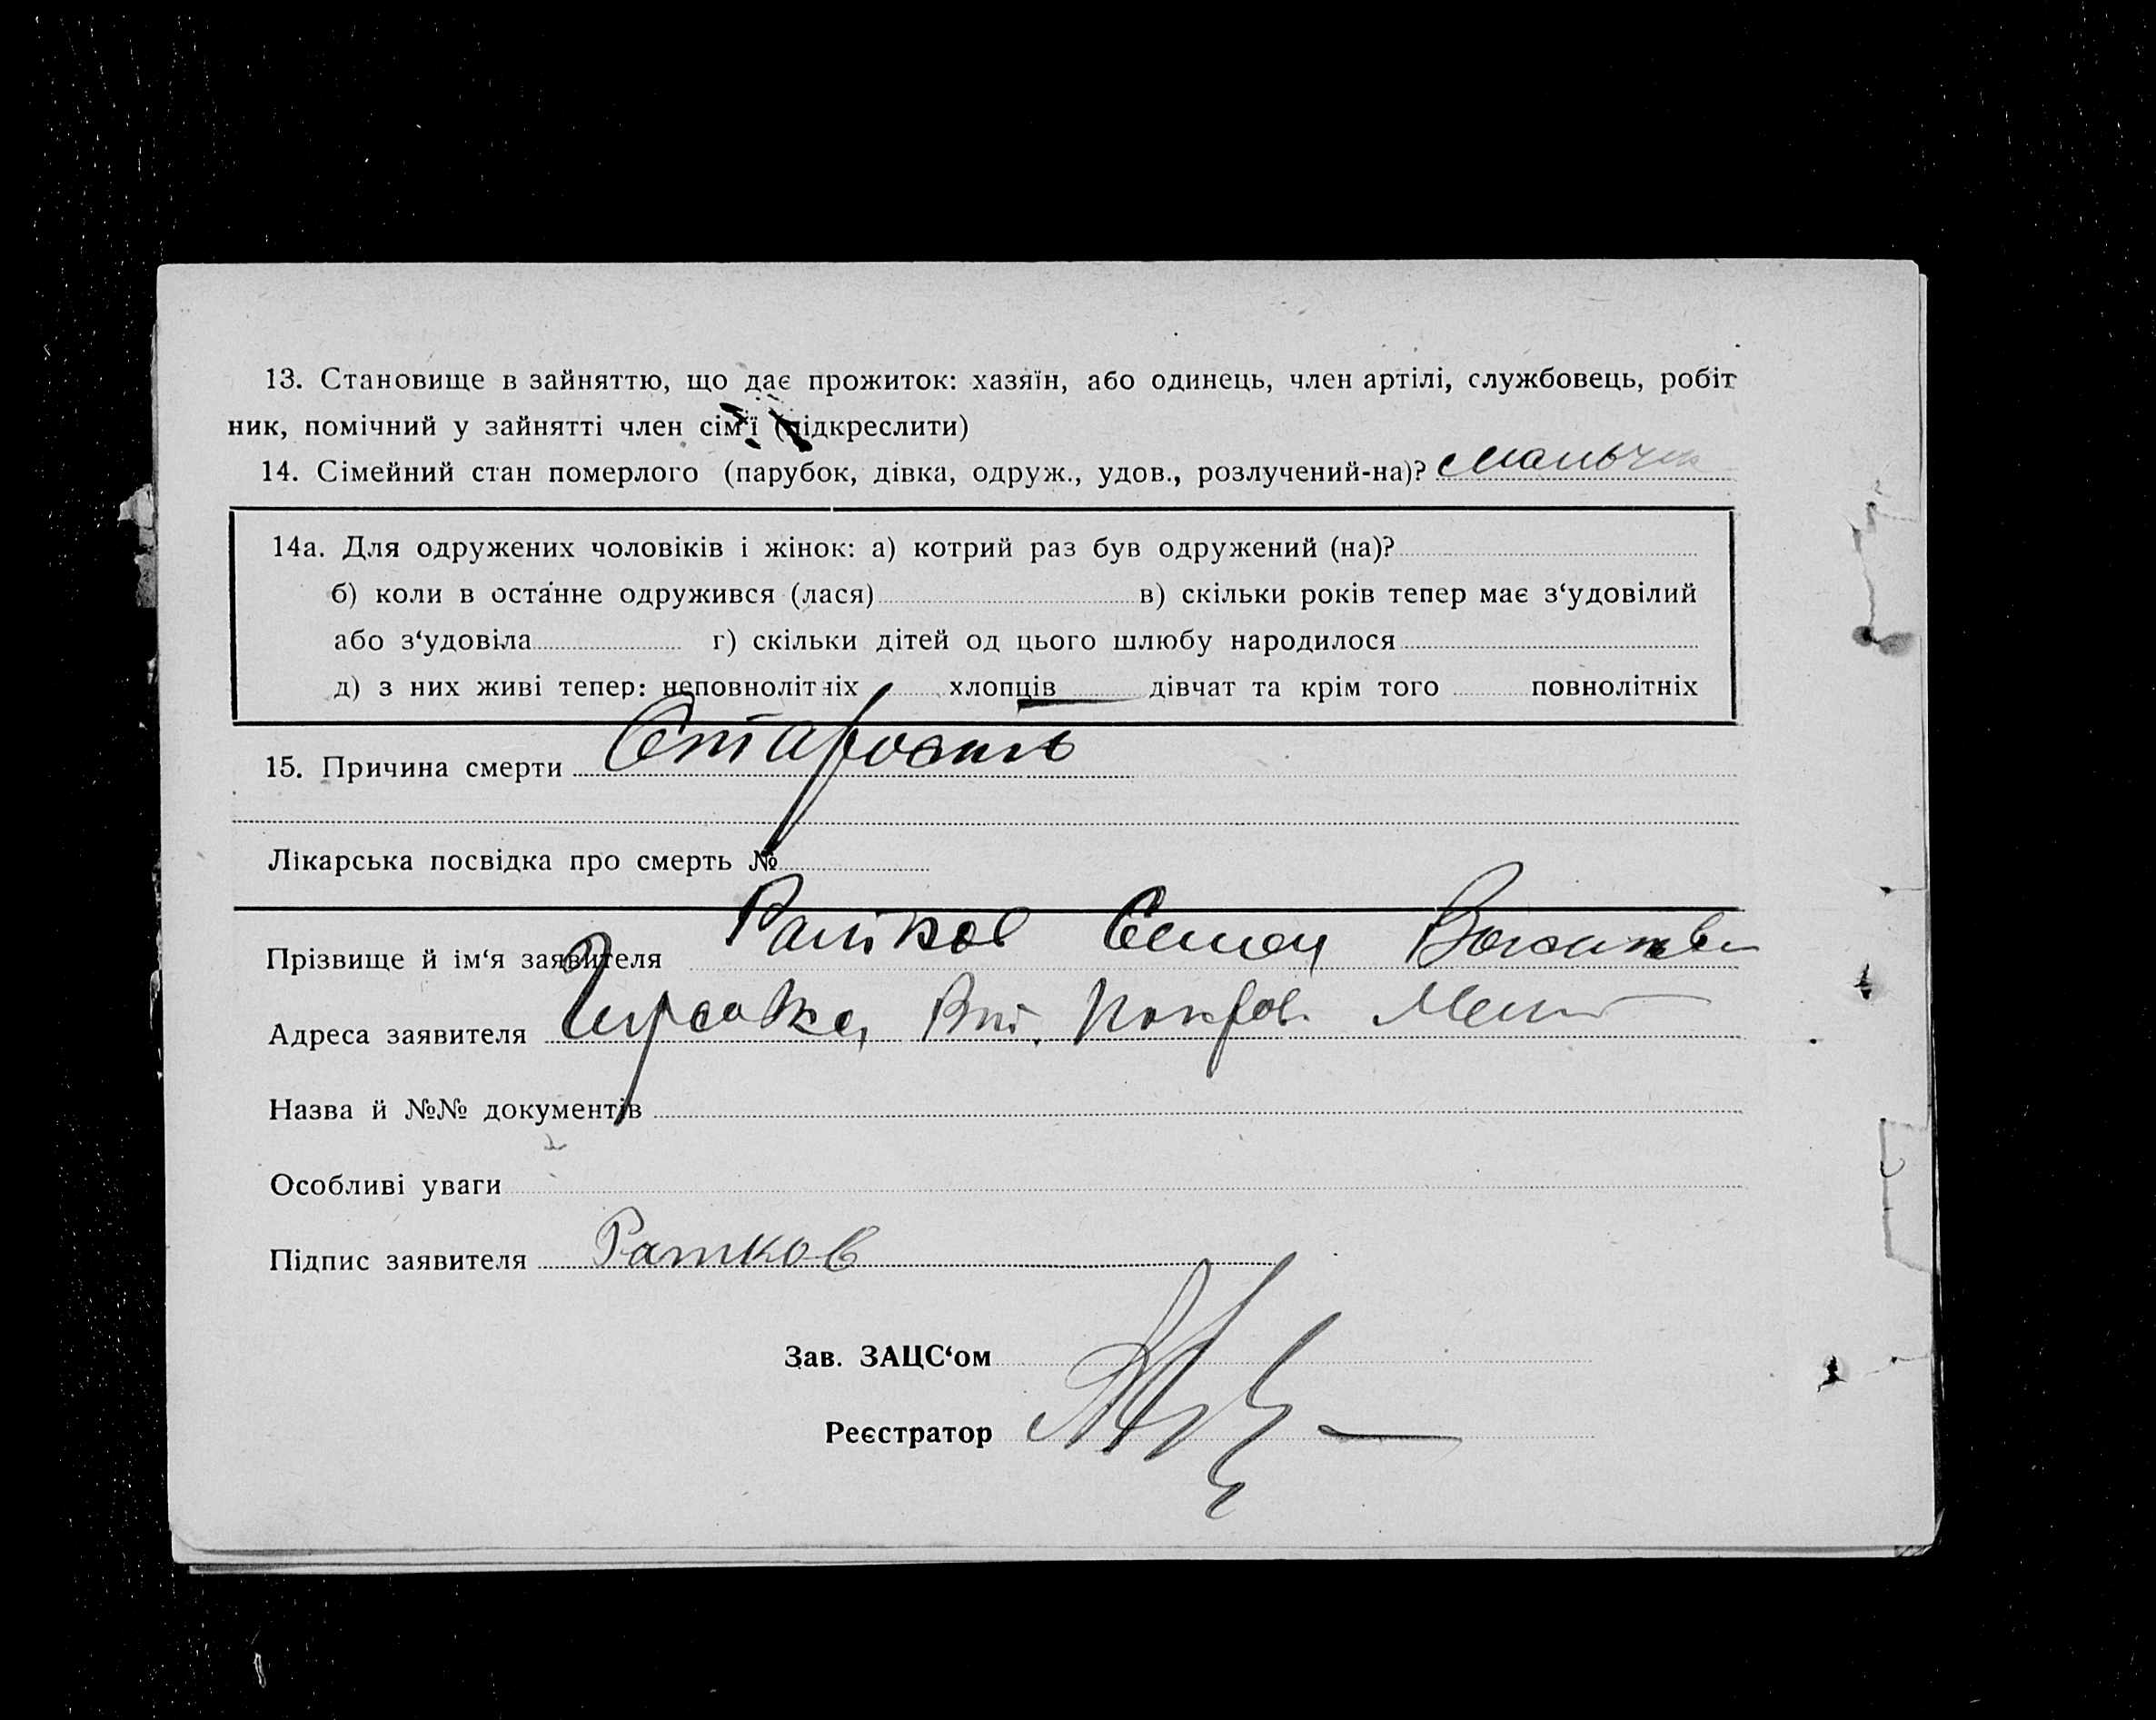 13. Становище в зайняттю, що дає прожиток: хазяїн, або одинець, член артілі, службовець, робіт
ник, помічний у зайнятті член сім'ї (підкреслити)
14. Сімейний стан померлого (парубок, дівка, одруж., удов., розлучений-на)? мальчик
14а. Для одружених чоловіків і жінок: а) котрий раз був одружений (на)?
б) коли в останне одружився (лася) в) скільки років тепер має з‘удовілий
або з‘удовіла г) скільки дітей од цього шлюбу народилося
д) з них живі тепер: неповнолітніх хлопців дівчат та крім того повнолітніх
15. Причина смерти Старость
Лікарська посвідка про смерть №
Прізвище й ім‘я заявителя Ратков Семен
Адреса заявителя Покров.
Назва й №№ документів
Особливі уваги
Підпис заявителя Ратков
Зав. ЗАЦС‘ом
Реєстратор